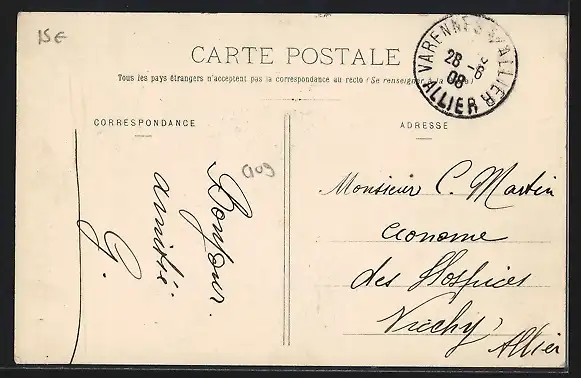 15€
CARTE POSTALE
Tous les pays étrangers n'acceptent pas la correspondance au recto (Se renseigner à la
CORRESPONDANCE
ADRESSE
VARENNES S/ ALLIER
28 -8
08
ALLIER
a09
Bonjour.
amitié
G.
Monsieur C. Martin
econome
des Hospices
Vichy
Allier